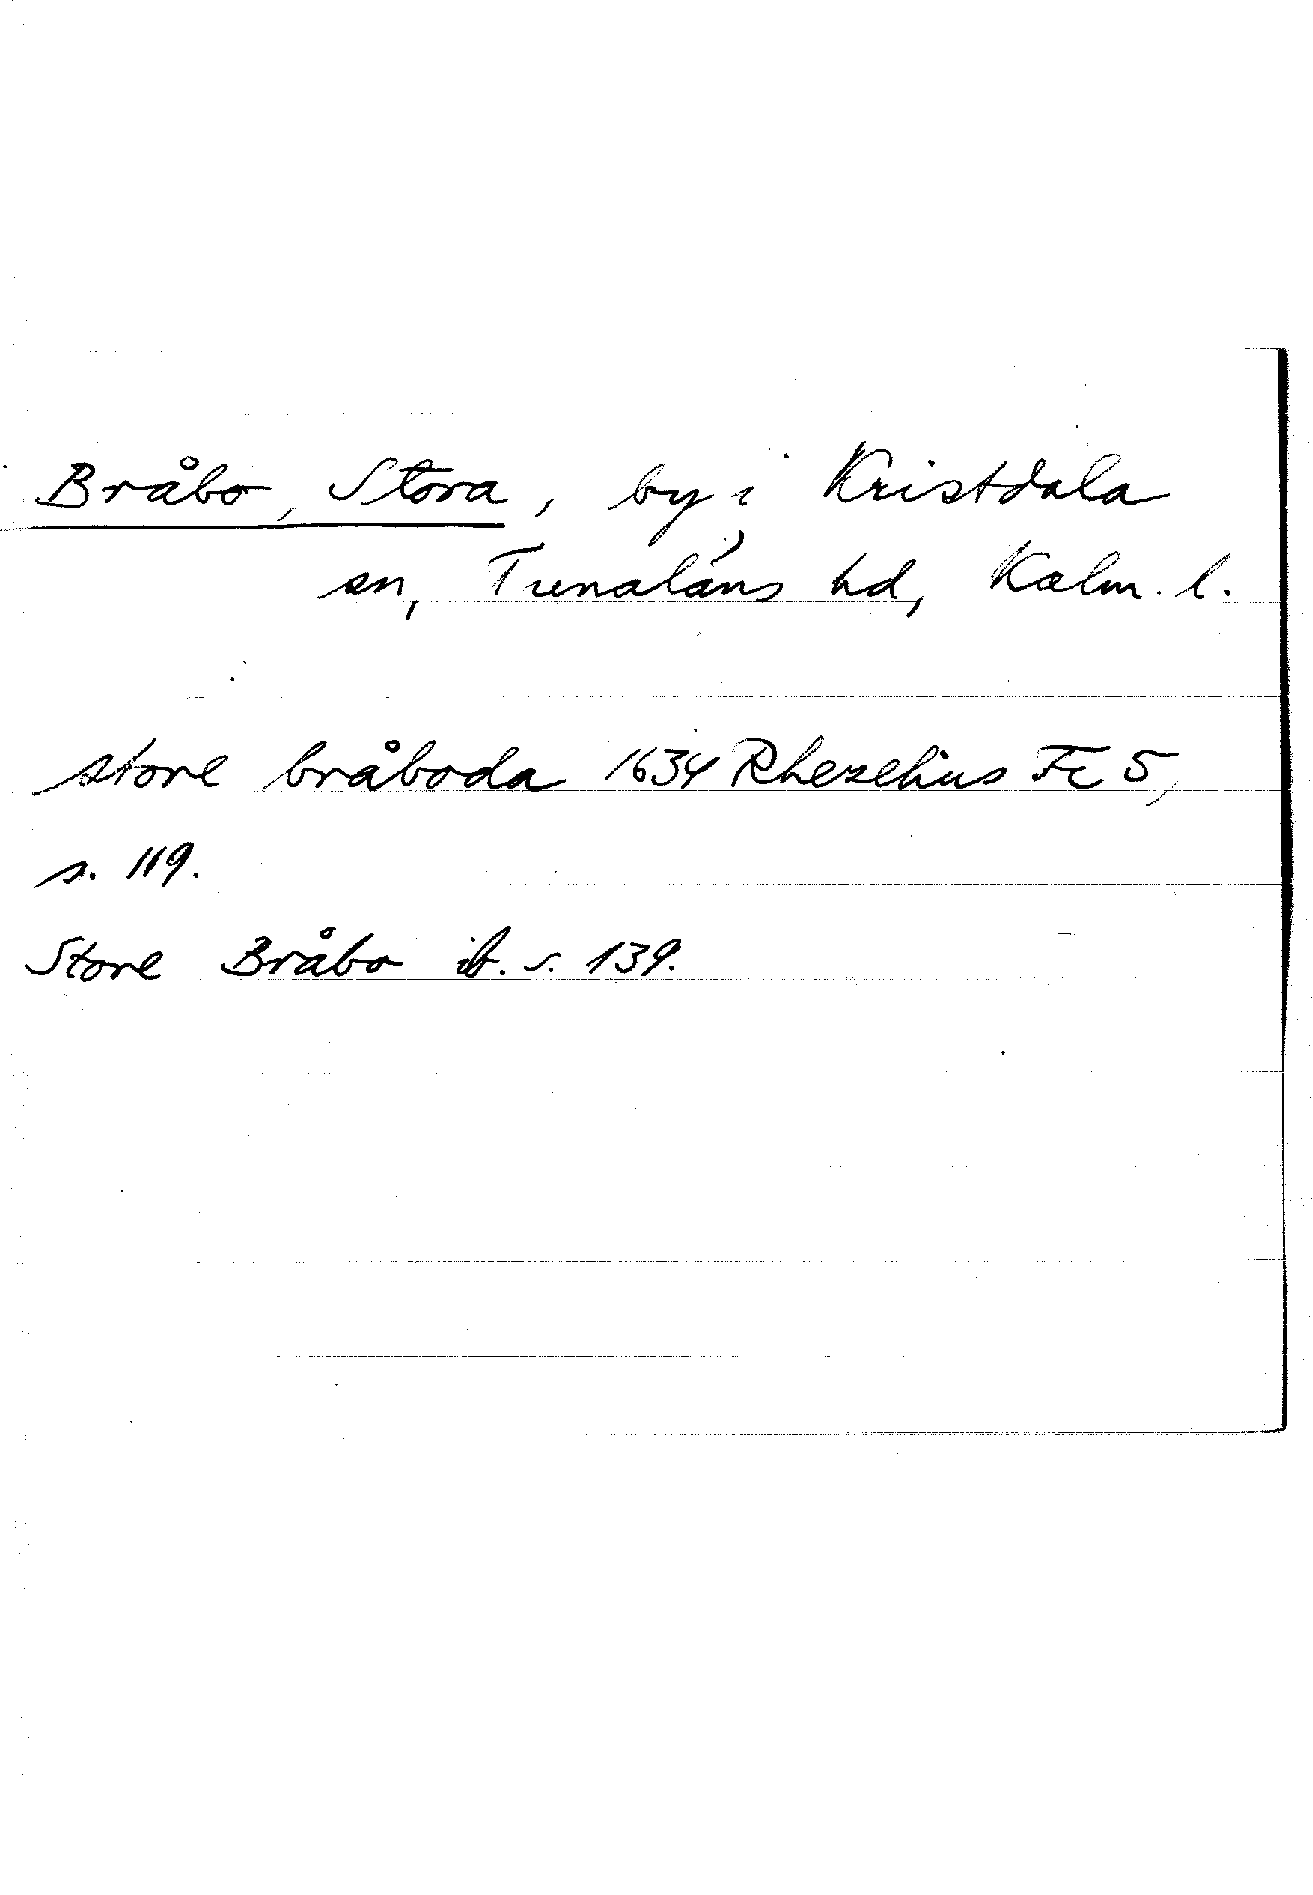 Bråbo, Stora, by i Kristdala
sn, Tunaläns hd, Kalm. l.
store bråboda 1634 Rhezelius Fc 5,
s. 119.
Store Bråbo ib. s. 139.